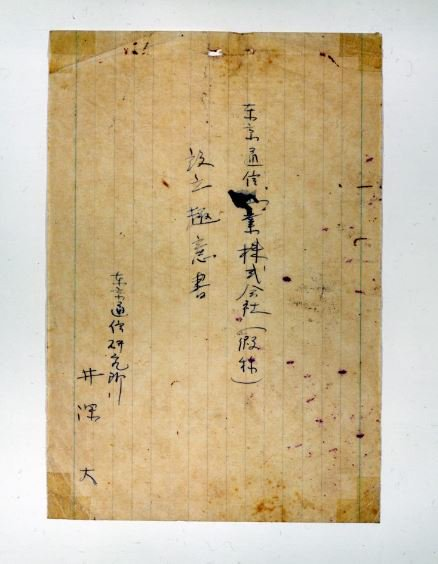 东京通信工業株式会社(假称)
設立趣意書
东京通信研究所
井深 大